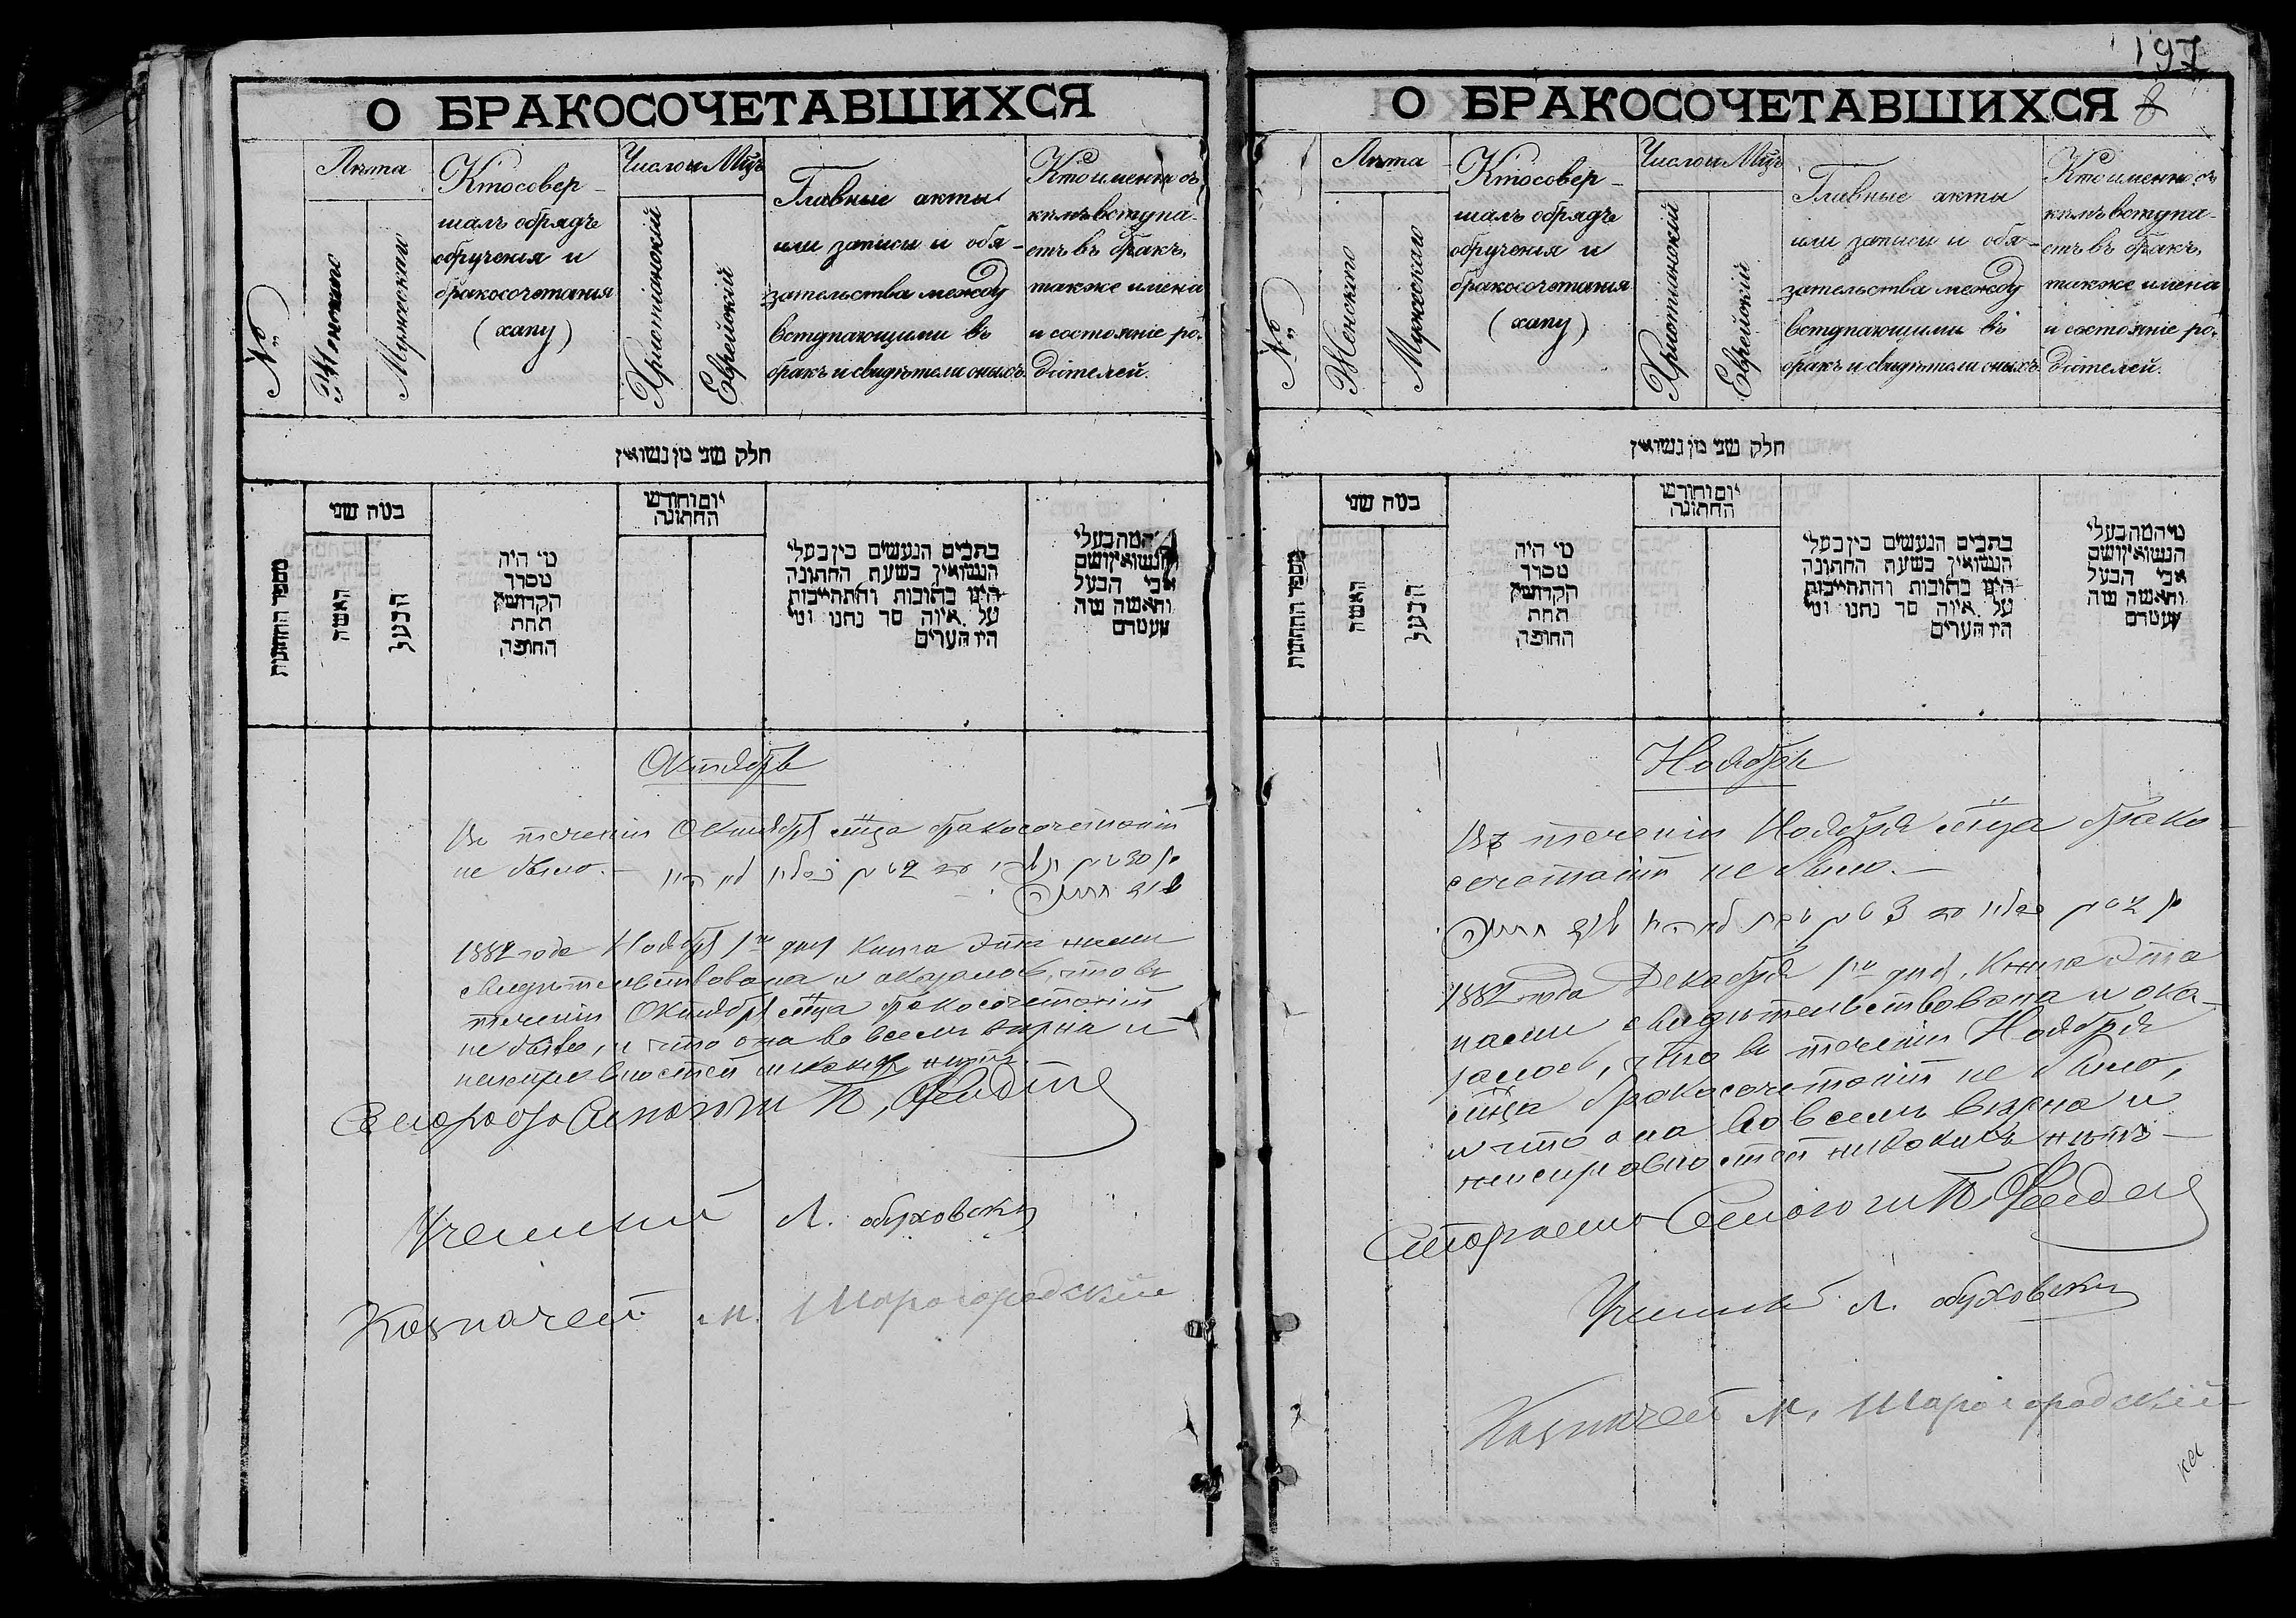 197
О БРАКОСОЧЕТАВШИХСЯ
№
Лѣта
Женскаго
Мужескаго
Кто совер-
шалъ обрядъ
обрученія и
бракосочетанія
(хапу)
Число и Мцъ
Христіанскій
Еврейскій
Главные акты
или записи и обя-
зательства между
вступающими въ
бракъ и свидѣтели оныхъ.
Кто именно съ
кѣмъ вступа-
етъ въ бракъ,
также имена
и состояніе ро-
дителей.
חלק שני מן נשואין
מספר החתונות
כמה שני
האשה
הבעל
מי היה
מסדר
הקדושין
תחת
החופה
יום וחודש
החתונה
כתבים הנעשים בין בעלי
הנשואין בשעת החתונה
היינו כתובות והתחייבות
על איזה סך נתנו ומי
היו העדים
המה בעלי
הנשואין ושם
אבי הבעל
והאשה מה
מעמדם
Октябрь
Въ теченіи Октября мца бракосочетаній
не было.
1882 года Ноября 1го дня Книга эта нами
свидѣтельствована и оказалось, что въ
теченіи Октября мца бракосочетаній
не было, и что она во всемъ вѣрна и
неисправностей никакихъ нѣтъ.
Ученый Л. Обуховскій
Казначей М. Шарогородскій
О БРАКОСОЧЕТАВШИХСЯ
8
№
Лѣта
Женскаго
Мужескаго
Кто совер-
шалъ обрядъ
обрученія и
бракосочетанія
(хапу)
Число и Мцъ
Христіанскій
Еврейскій
Главные акты
или записи и обя-
зательства между
вступающими въ
бракъ и свидѣтели оныхъ.
Кто именно съ
кѣмъ вступа-
етъ въ бракъ,
также имена
и состояніе ро-
дителей.
חלק שני מן נשואין
מספר החתונות
כמה שני
האשה
הבעל
מי היה
מסדר
הקדושין
תחת
החופה
יום וחודש
החתונה
כתבים הנעשים בין בעלי
הנשואין בשעת החתונה
היינו כתובות והתחייבות
על איזה סך נתנו ומי
היו העדים
מי המה בעלי
הנשואין ושם
אבי הבעל
והאשה מה
מעמדם
Ноябрь
Въ теченіи Ноября мца брако-
сочетаній не было.—
1882 года Декабря 1го дня, Книга эта
нами свидѣтельствована и ока-
залось, что въ теченіи Ноября
мца бракосочетаній не было,
и что она во всемъ вѣрна и
неисправностей никакихъ нѣтъ—
Ученый Л. Обуховскій
Казначей М. Шарогородскій